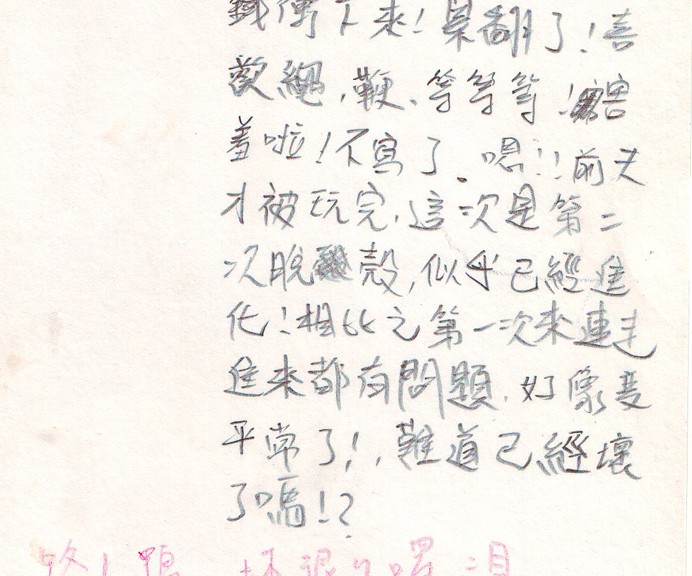 下來!累翻了!喜
歡繩,鞭,等等等!害
羞啦!不寫了.嗯!!前天
才被玩完,這次是第二
次脫殼,似乎已經進
化!相比之第一次來連走
進來都有問題.好像變
平常了!,難道已經壞
了嗎!?